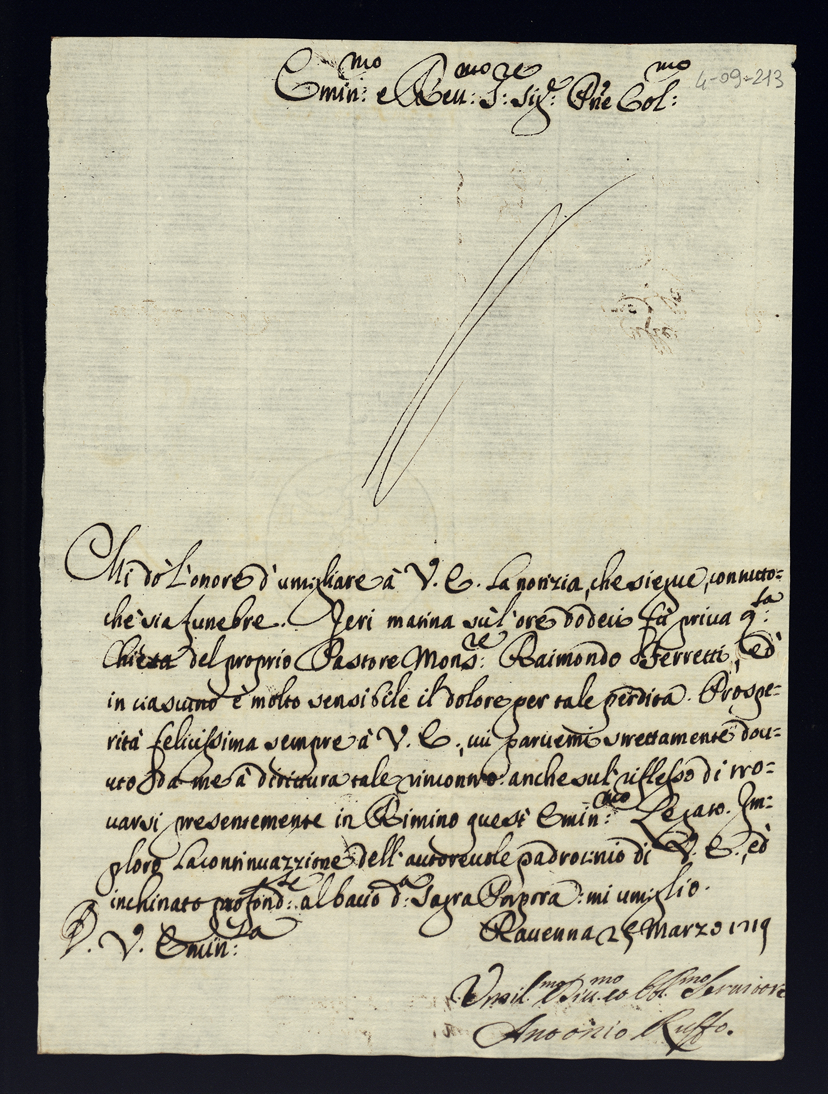 Emin:mo e Reu:mo S:re Sig:e Pne Col:mo
4-09-213
Mi dò l'onore d'umigliare à V. E. la notizia, che siegue, contutto=
che sia funebre. Jeri matina sù l'ore dodeci fù priva q:sta
Chiesa del proprio Pastore Mons:re Raimondo Ferretti, ed
in ciascuno è molto sensibile il dolore per tale perdita. Prospe=
rità felicissima sempre à V. E., mi paruemi strettamente dou=
uto da me à dirittura tale rincontro anche sul riflesso di tro=
uarsi presentemente in Rimino quest' Emin:mo Legato. Im=
ploro la continuazzione dell' autoreuole padrocinio di V. E., ed
inchinato profond:te al bacio d:a Sagra Porpora: mi umiglio.
D. V. Emin:za
Ravenna 25 Marzo 1719
Vmil:mo Diu:mo et Obl:mo Seruitore
Antonio Ruffo.